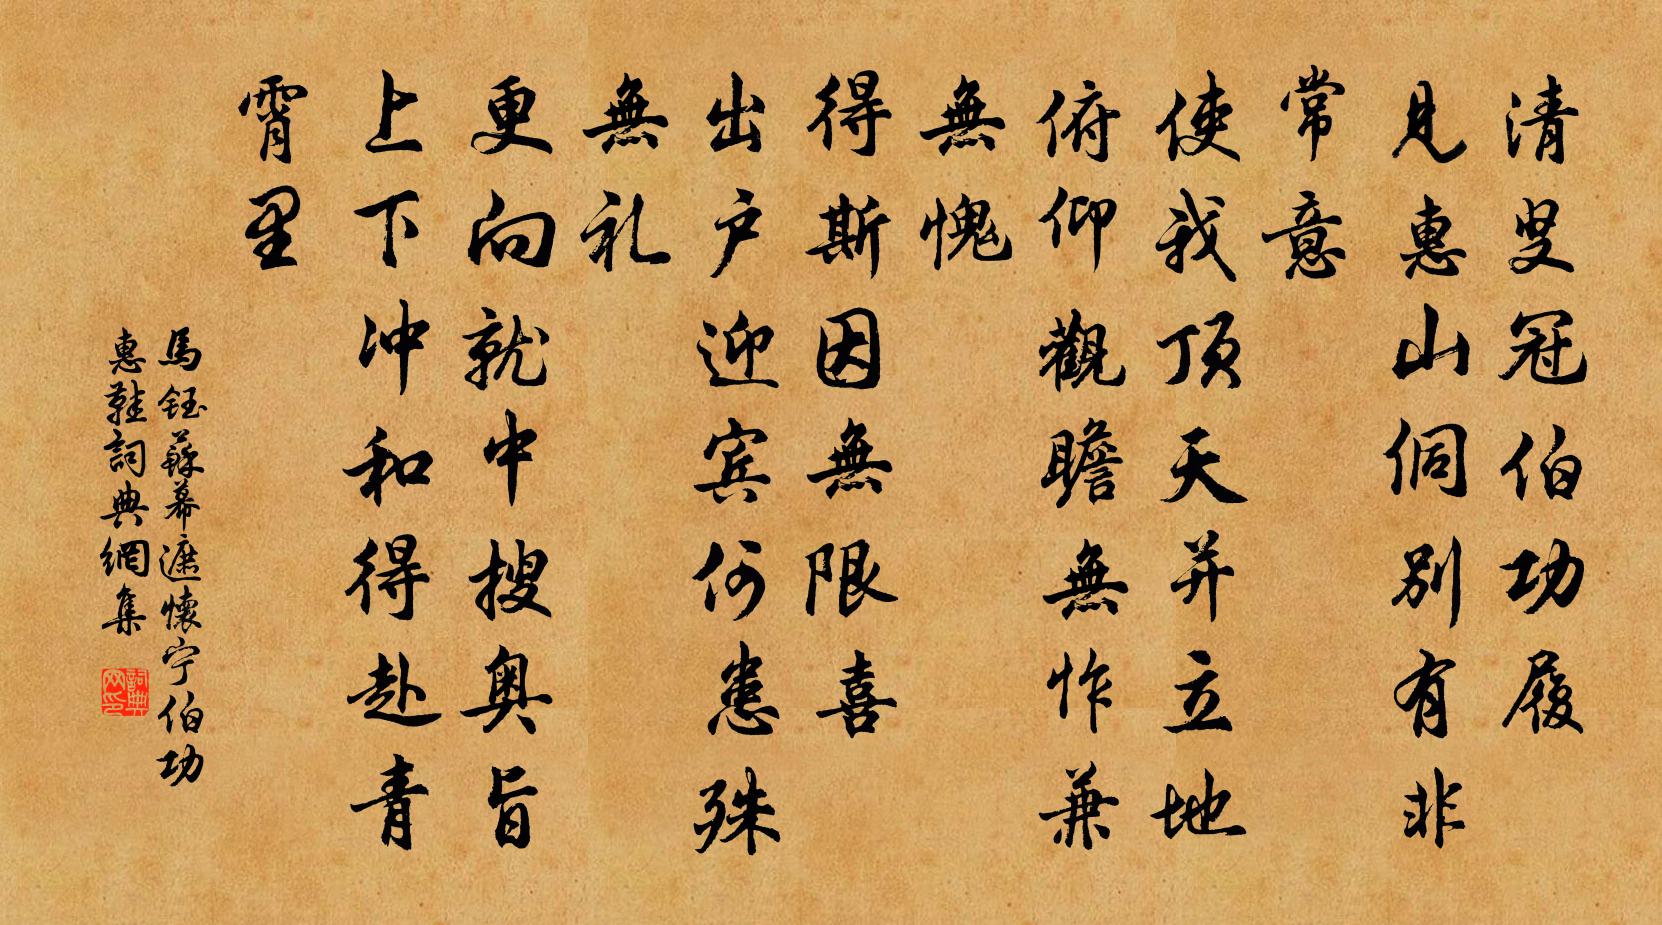 清叟冠伯功履
見惠山侗別有非
常意
使我頂天并立地
俯仰觀瞻無怍兼
無愧
得斯因無限喜
出户迎宾何患殊
無礼
更向就中搜奥旨
上下冲和得赴青
霄里
馬鈺蘇幕遮懷宁伯功
惠鞋詞典網集
詞典网印